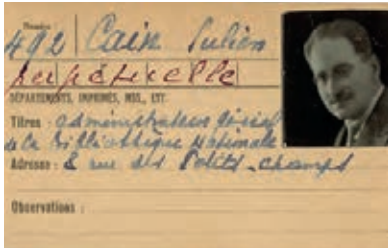 Numéro
492 Cain Julien
perpétuelle
DÉPARTEMENTS, IMPRIMÉS, MSS., ETC.
Titres : administrateur général
de la Bibliothèque Nationale
Adresse : 8 rue des Petits-champs
Observations :